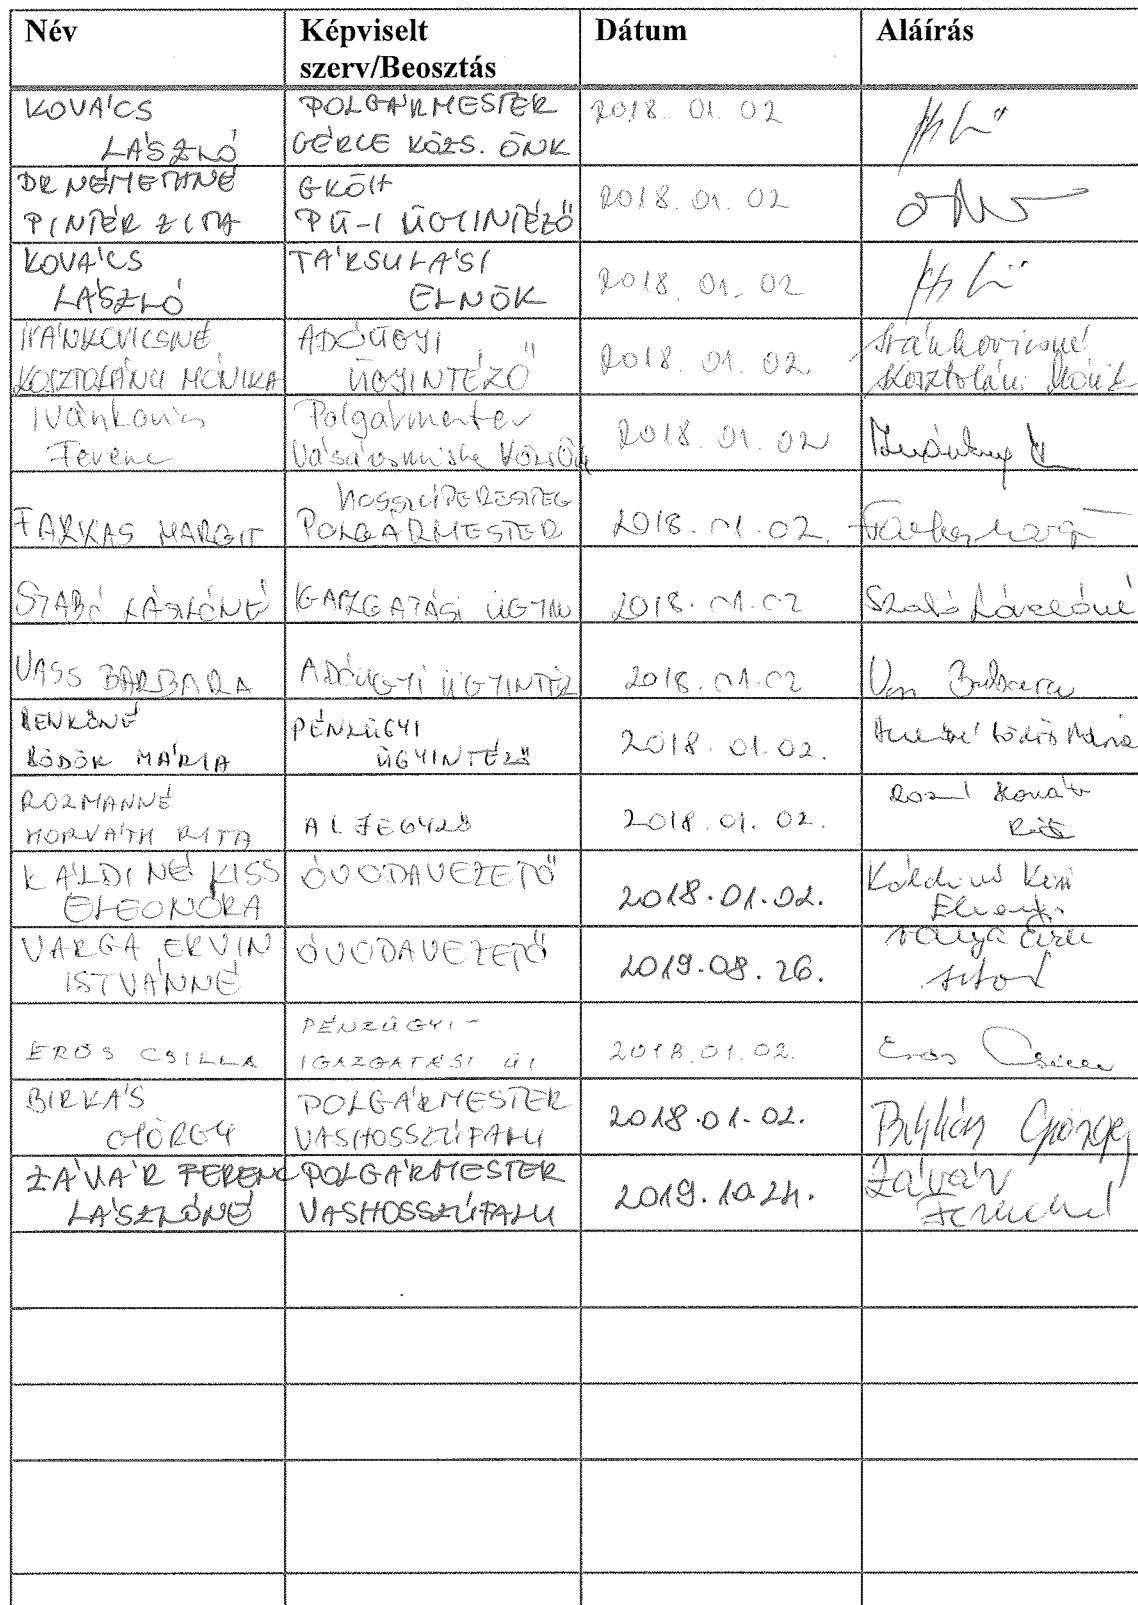 Név Képviselt szerv/Beosztás Dátum Aláírás
KOVÁCS LÁSZLÓ POLGÁRMESTER GÉRCE KÖZS. ÖNK 2018. 01. 02
DR NÉMETHNÉ PINTÉR ZITA GKÖH PÜ-I ÜGYINTÉZŐ 2018. 01. 02
KOVÁCS LÁSZLÓ TÁRSULÁSI ELNÖK 2018. 01. 02
IVÁNKOVICSNÉ KOSZTOLÁNCI MÓNIKA ADÓÜGYI ÜGYINTÉZŐ 2018. 01. 02 Ivánkovicsné
Ivánkovics Ferenc Polgármester Vásárosmiske 2018. 01. 02
FARKAS MARGIT HOSSZÚPERESZTEG POLGÁRMESTER 2018. 01. 02. Farkas Margit
SZABÓ LÁSZLÓNÉ IGAZGATÁSI ÜGYIN 2018. 01. 02 Szabó Lászlóné
VASS BARBARA ADÓÜGYI ÜGYINTÉZ 2018. 01. 02 Vass Barbara
BENKŐNÉ BÖDÖR MÁRIA PÉNZÜGYI ÜGYINTÉZŐ 2018. 01. 02. Mária
ROZMANNÉ HORVÁTH RITA ALJEGYZŐ 2018. 01. 02. Rita
KÁLDINÉ KISS ELEONÓRA ÓVODAVEZETŐ 2018. 01. 02. Káldiné Kiss
VARGA ERVIN ISTVÁNNÉ ÓVODAVEZETŐ 2019. 08. 26. Varga
ERŐS CSILLA PÉNZÜGYI- IGAZGATÁSI ÜI 2018. 01. 02. Erős Csilla
BIRKÁS GYÖRGY POLGÁRMESTER VASHOSSZÚFALU 2018. 01. 02. Birkás György
ZÁVÁR FERENC LÁSZLÓNÉ POLGÁRMESTER VASHOSSZÚFALU 2019. 10. 24. Závár Ferencné